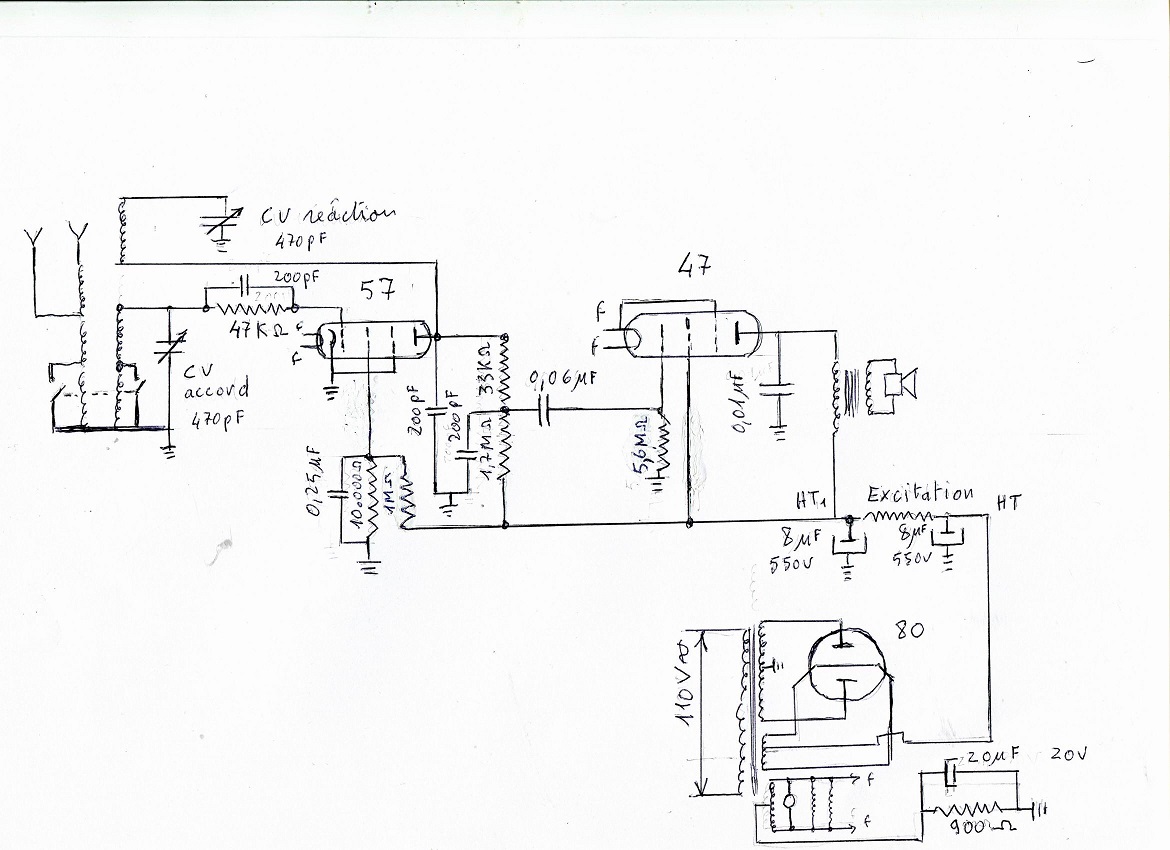 CV réaction
470pF
47
200pF
57
47KΩ
F
F
F
F
CV
accord
470pF
200pF
200pF
33KΩ
1,7MΩ
0,06µF
0,01µF
5,6MΩ
0,25µF
10.000Ω
1MΩ
HT1
Excitation
HT
8µF
550V
8µF
550V
80
110V
20µF 20V
f
f
900Ω